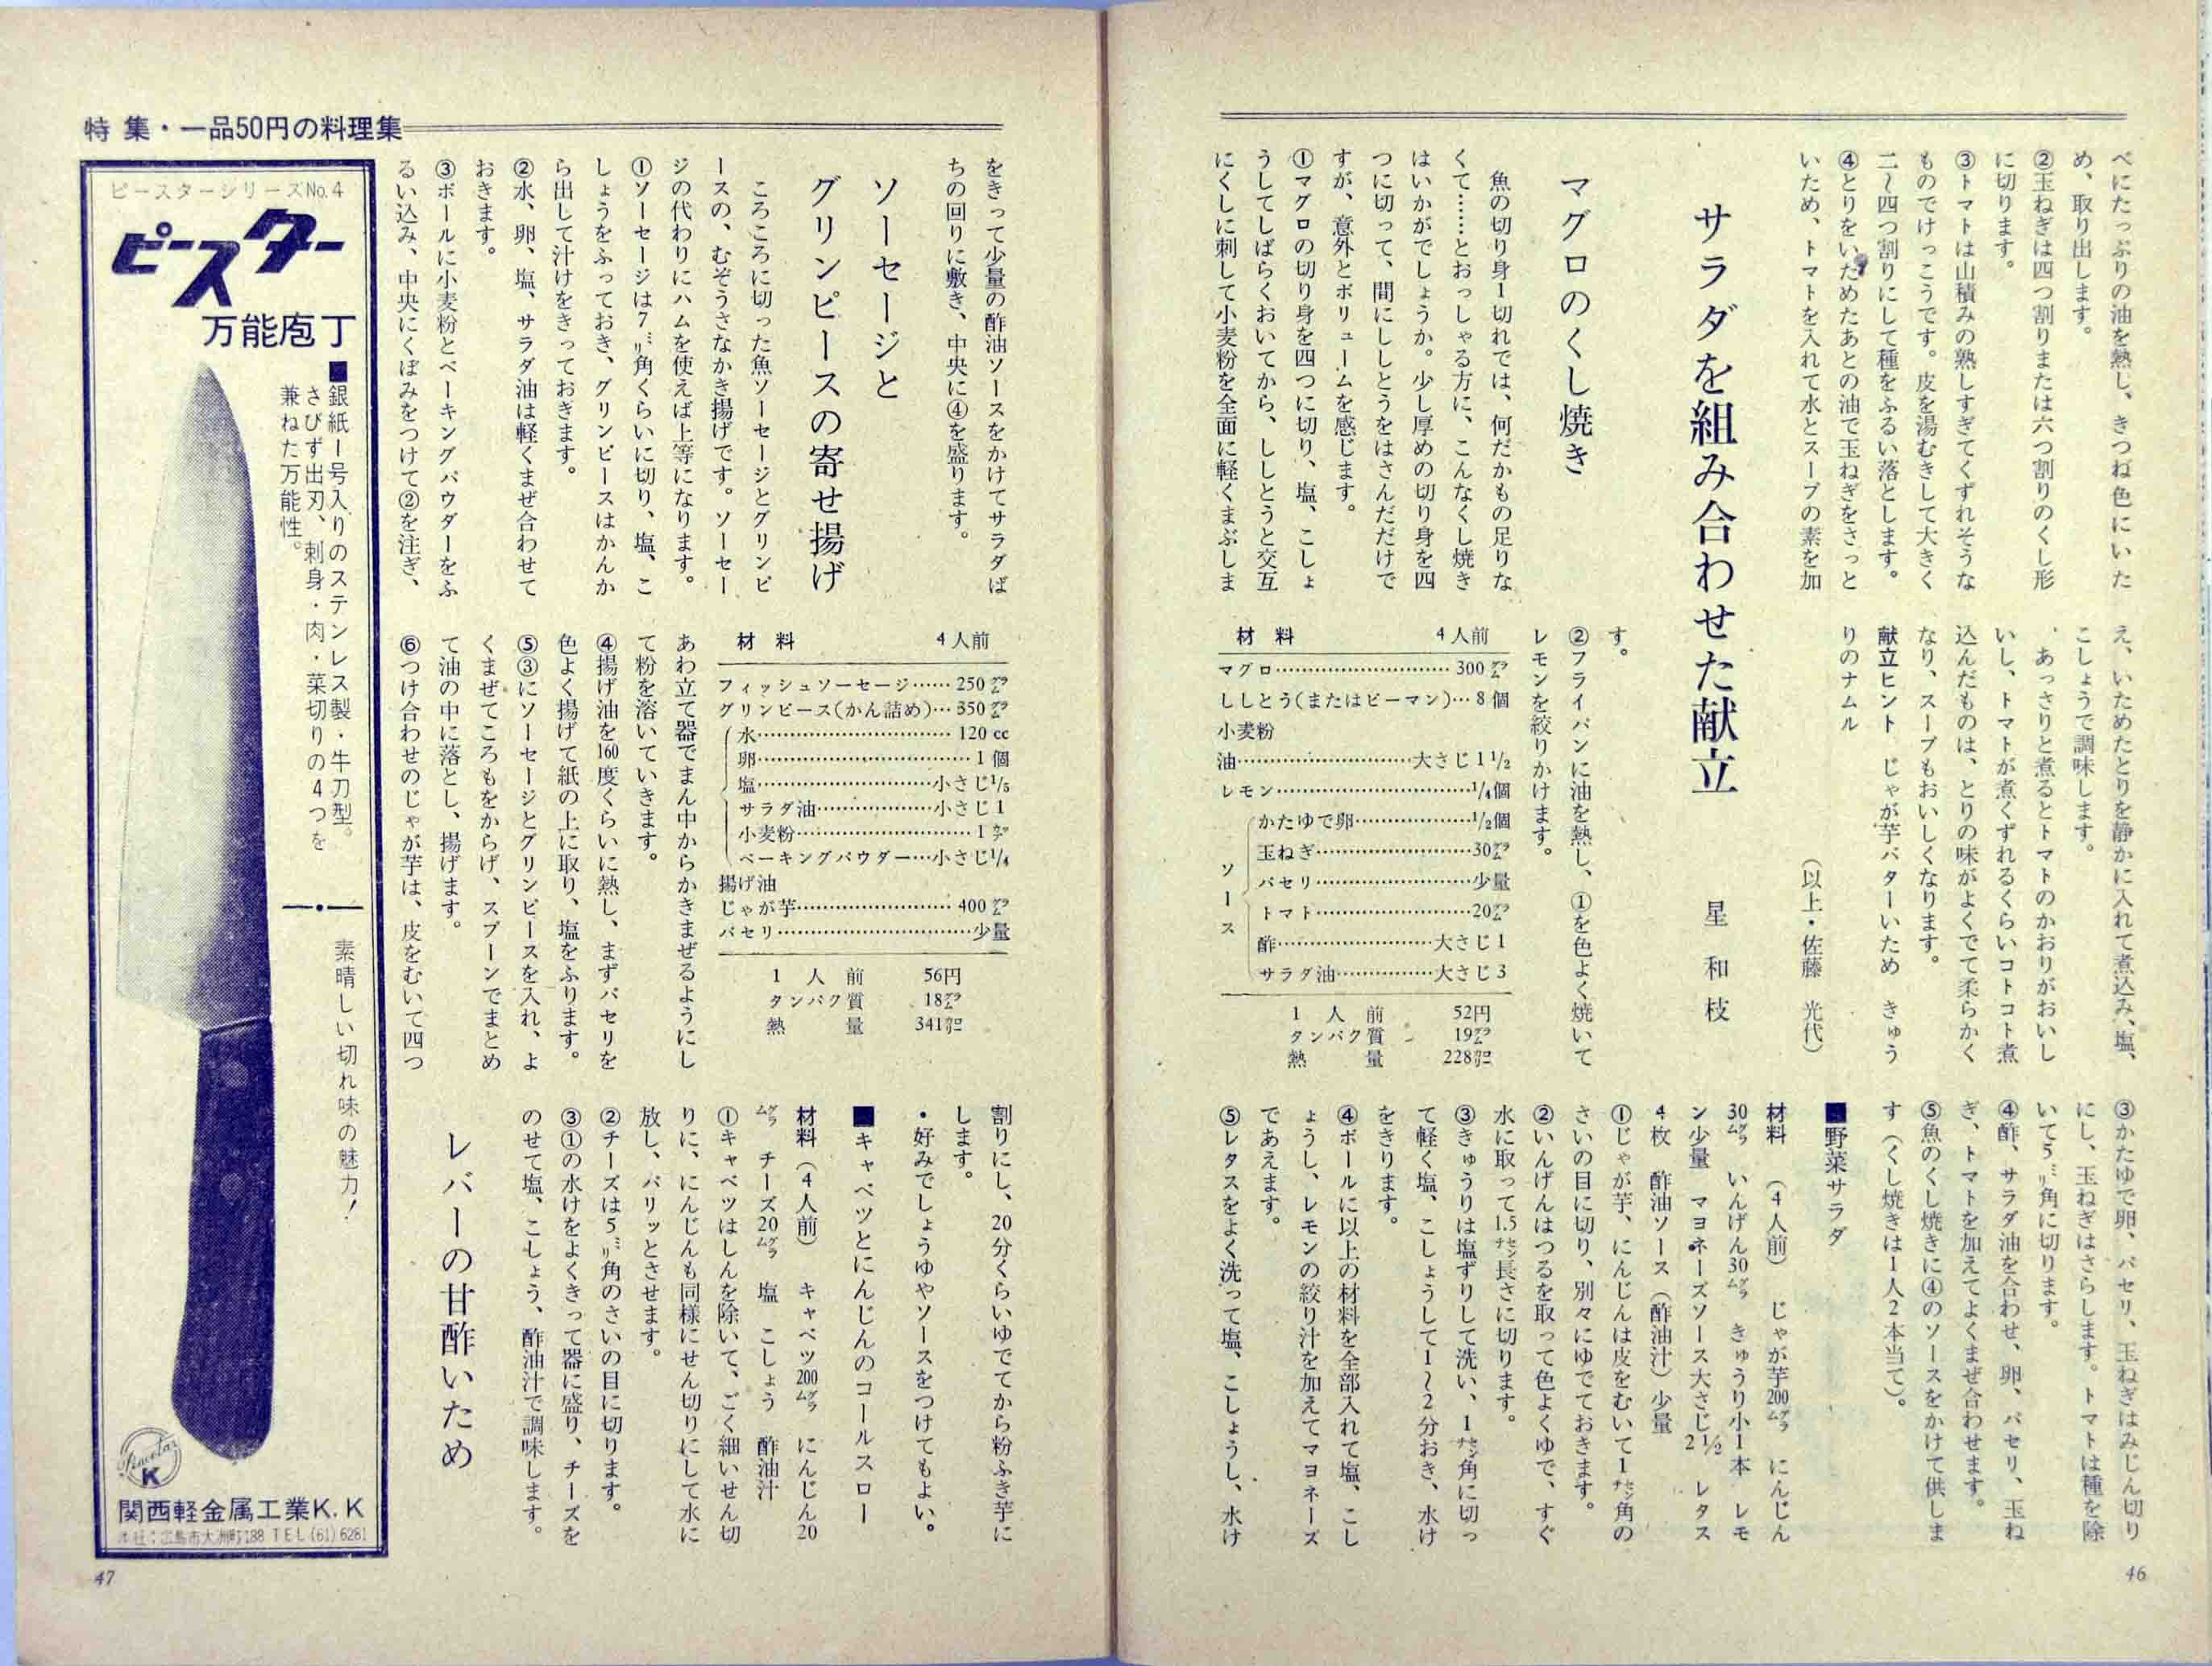 べにたっぷりの油を熱し、きつね色にいた
め、取り出します。
②玉ねぎは四つ割りまたは六つ割りのくし形
に切ります。
③トマトは山積みの熟しすぎてくずれそうな
ものでけっこうです。皮を湯むきして大きく
二〜四つ割りにして種をふるい落とします。
④とりをいためたあとの油で玉ねぎをさっと
いため、トマトを入れて水とスープの素を加
え、いためたとりを静かに入れて煮込み、塩、
こしょうで調味します。
・あっさりと煮るとトマトのかおりがおいし
いし、トマトが煮くずれるくらいコトコト煮
込んだものは、とりの味がよくでて柔らかく
なり、スープもおいしくなります。
献立ヒント　じゃが芋バターいため　きゅう
りのナムル
（以上・佐藤　光代）
サラダを組み合わせた献立
星　和　枝
マグロのくし焼き
魚の切り身1切れでは、何だかもの足りな
くて……とおっしゃる方に、こんなくし焼き
はいかがでしょうか。少し厚めの切り身を四
つに切って、間にししとうをはさんだだけで
すが、意外とボリュームを感じます。
①マグロの切り身を四つに切り、塩、こしょ
うしてしばらくおいてから、ししとうと交互
にくしに刺して小麦粉を全面に軽くまぶしま
す。
②フライパンに油を熱し、①を色よく焼いて
レモンを絞りかけます。
材　料　4人前
マグロ……300㌘
ししとう(またはピーマン)…8個
小麦粉
油……大さじ1 1/2
レモン……1/4個
ソース
かたゆで卵……1/2個
玉ねぎ……30㌘
パセリ……少量
トマト……20㌘
酢……大さじ1
サラダ油……大さじ3
1　人　前　52円
タンパク質　19㌘
熱　　量　228㌍
③かたゆで卵、パセリ、玉ねぎはみじん切り
にし、玉ねぎはさらします。トマトは種を除
いて5㍉角に切ります。
④酢、サラダ油を合わせ、卵、パセリ、玉ね
ぎ、トマトを加えてよくまぜ合わせます。
⑤魚のくし焼きに④のソースをかけて供しま
す（くし焼きは1人2本当て）。
■野菜サラダ
材料　（4人前）　じゃが芋200㌘　にんじん
30㌘　いんげん30㌘　きゅうり小1本　レモ
ン少量　マヨネーズソース大さじ2 1/2　レタス
4枚　酢油ソース（酢油汁）少量
①じゃが芋、にんじんは皮をむいて1㌢角の
さいの目に切り、別々にゆでておきます。
②いんげんはつるを取って色よくゆで、すぐ
水に取って1.5㌢長さに切ります。
③きゅうりは塩ずりして洗い、1㌢角に切っ
て軽く塩、こしょうして1〜2分おき、水け
をきります。
④ボールに以上の材料を全部入れて塩、こし
ょうし、レモンの絞り汁を加えてマヨネーズ
であえます。
⑤レタスをよく洗って塩、こしょうし、水け
46
をきって少量の酢油ソースをかけてサラダば
ちの回りに敷き、中央に④を盛ります。
ソーセージと
グリンピースの寄せ揚げ
ころころに切った魚ソーセージとグリンピ
ースの、むぞうさなかき揚げです。ソーセー
ジの代わりにハムを使えば上等になります。
①ソーセージは7㍉角くらいに切り、塩、こ
しょうをふっておき、グリンピースはかんか
ら出して汁けをきっておぎます。
②水、卵、塩、サラダ油は軽くまぜ合わせて
おきます。
③ボールに小麦粉とベーキングパウダーをふ
るい込み、中央にくぼみをつけて②を注ぎ、
材　料　4人前
フィッシュソーセージ……250㌘
グリンピース(かん詰め)…350㌘
水……120 cc
卵……1個
塩……小さじ1/5
サラダ油……小さじ1
小麦粉……1㌍
ベーキングパウダー…小さじ1/4
揚げ油
じゃが芋……400㌘
パセリ……少量
1　人　前　56円
タンパク質　18㌘
熱　　量　341㌍
あわ立て器でまん中からかきまぜるようにし
て粉を溶いていきます。
④揚げ油を160度くらいに熱し、まずパセリを
色よく揚げて紙の上に取り、塩をふります。
⑤③にソーセージとグリンピースを入れ、よ
くまぜてころもをからげ、スプーンでまとめ
て油の中に落とし、揚げます。
⑥つけ合わせのじゃが芋は、皮をむいて四つ
割りにし、20分くらいゆでてから粉ふき芋に
します。
・好みでしょうゆやソースをつけてもよい。
■キャベツとにんじんのコールスロー
材料（4人前）　キャベツ200㌘　にんじん20
㌘　チーズ20㌘　塩　こしょう　酢油汁
①キャベツはしんを除いて、ごく細いせん切
りに、にんじんも同様にせん切りにして水に
放し、パリッとさせます。
②チーズは5㍉角のさいの目に切ります。
③①の水けをよくきって器に盛り、チーズを
のせて塩、こしょう、酢油汁で調味します。
レバーの甘酢いため
特集・一品50円の料理集
ピースターシリーズNo.4
ピースター
万能庖丁
■銀紙1号入りのステンレス製・牛刀型。
さびず出刃、刺身・肉・菜切りの4つを
兼ねた万能性。
素晴しい切れ味の魅力！
Peacetar
K
関西軽金属工業K.K
本社：広島市大洲町188 TEL(61)6281
47